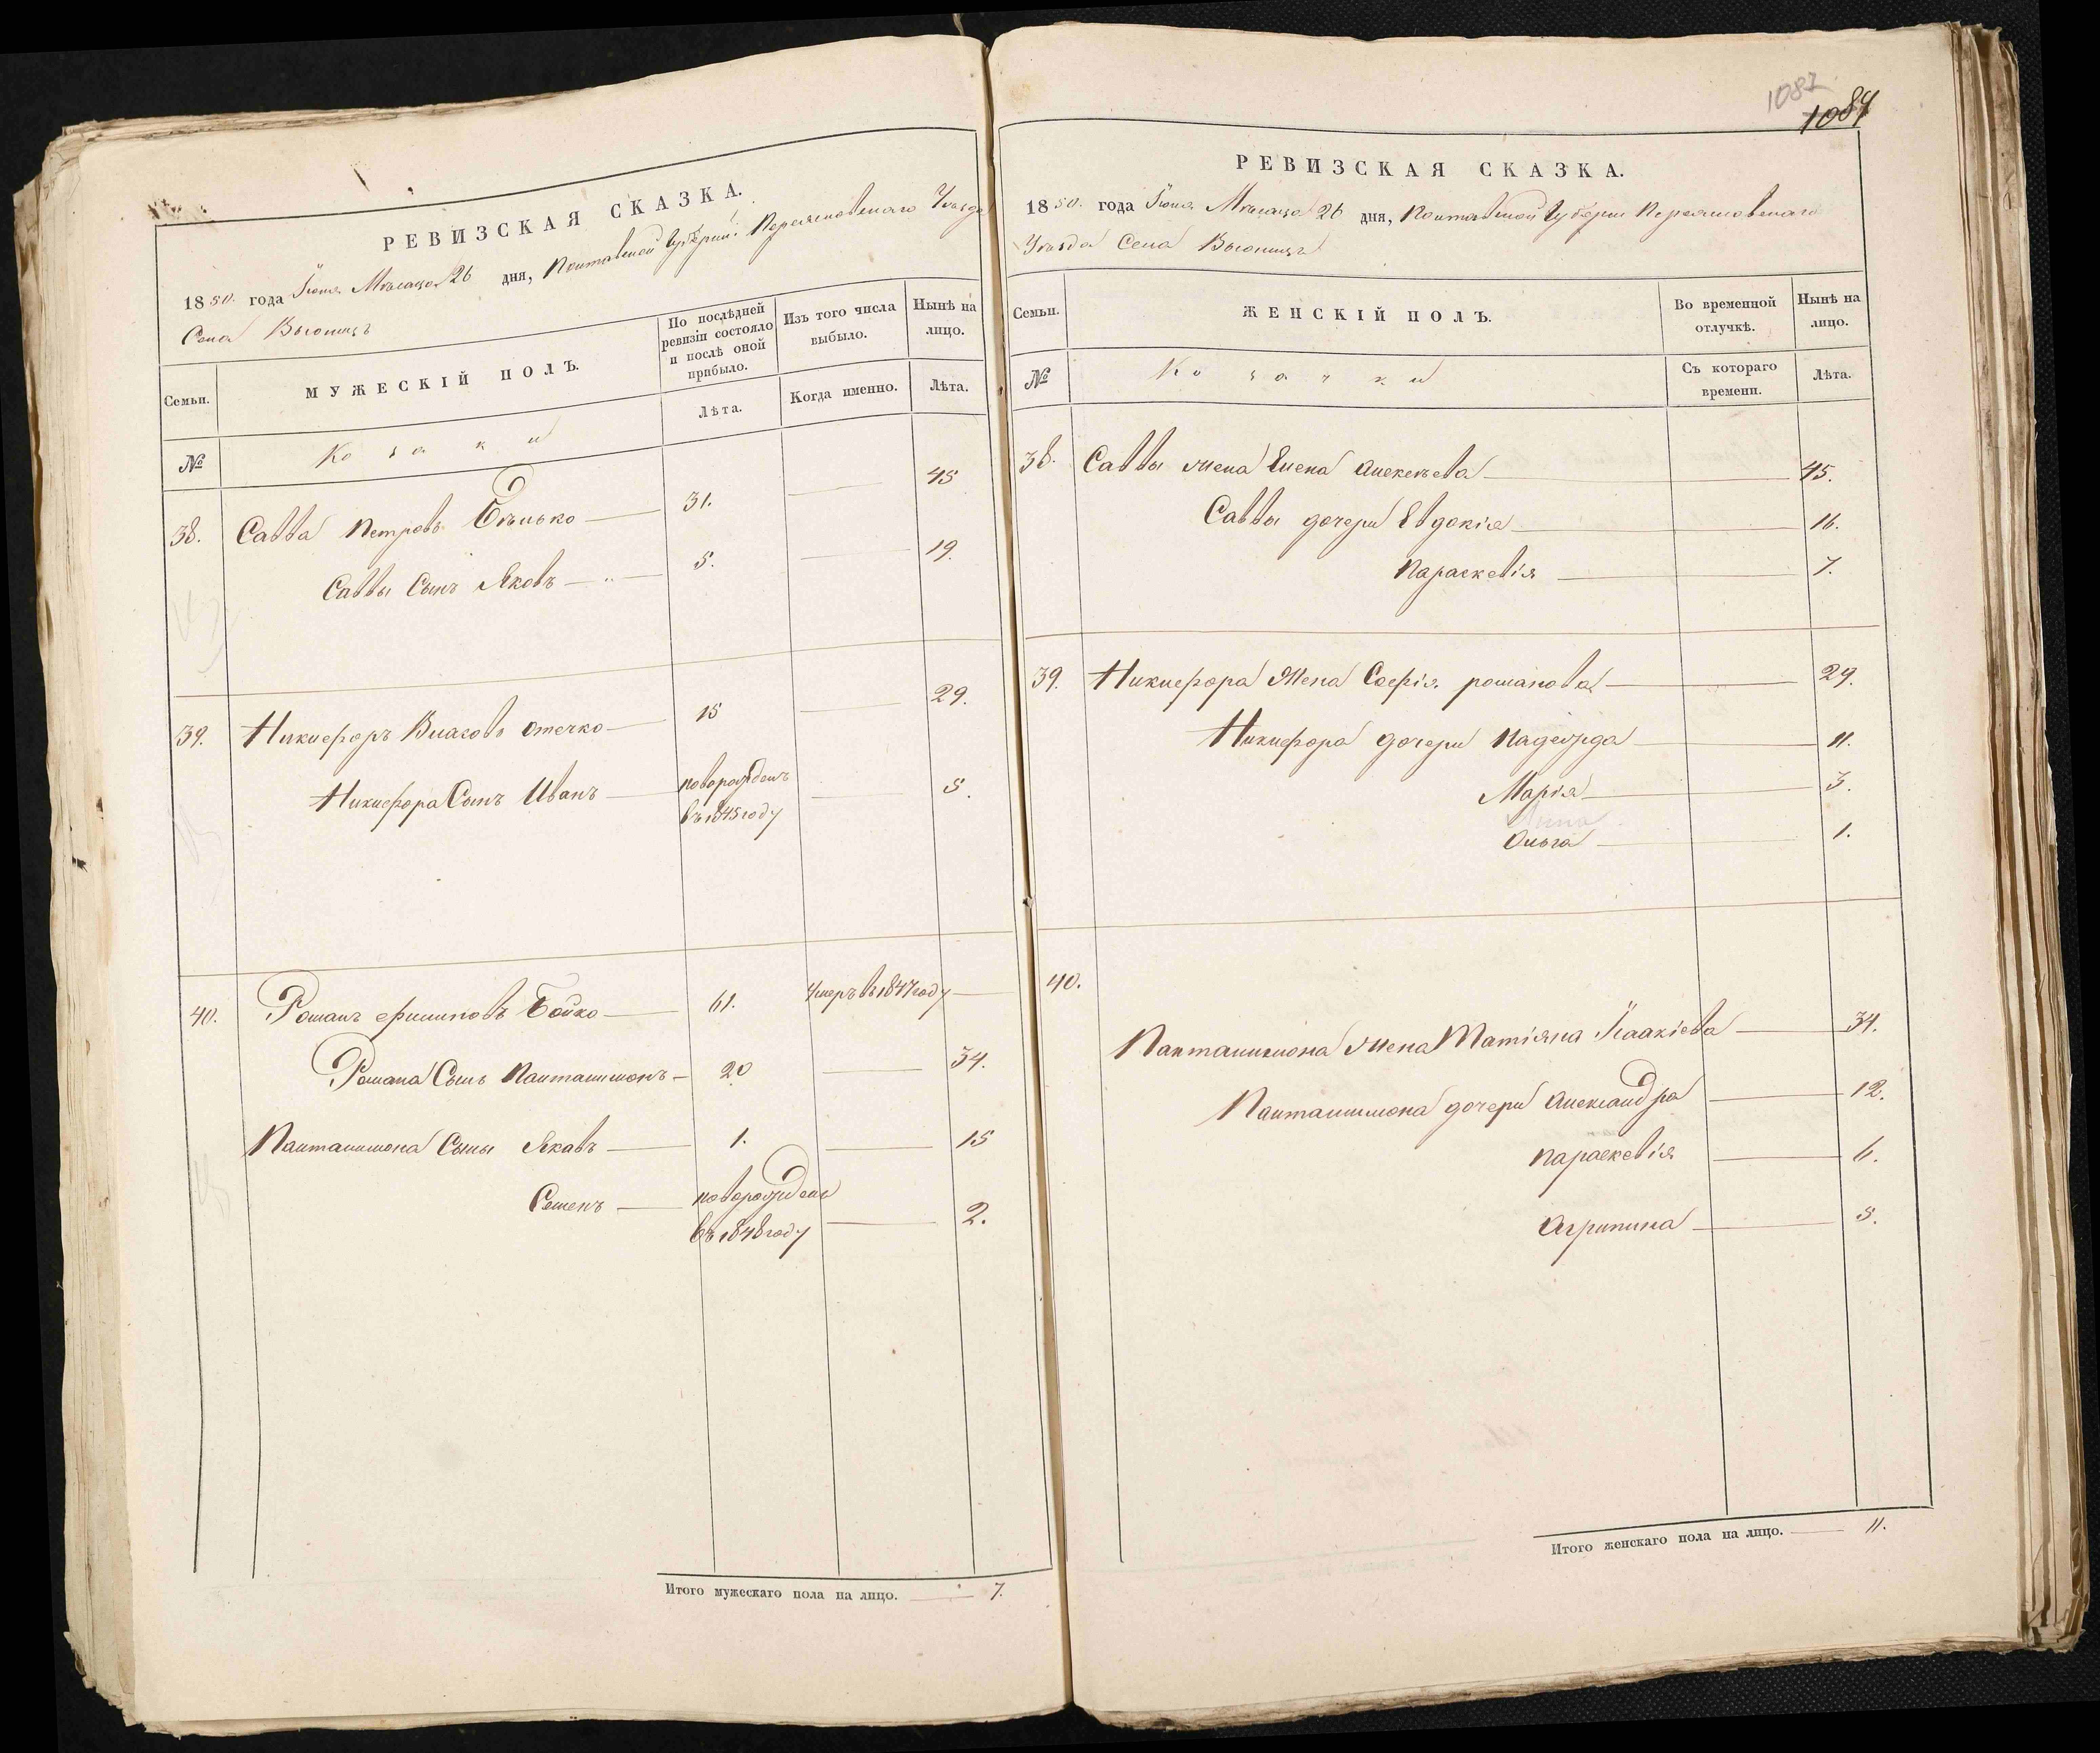 РЕВИЗСКАЯ СКАЗКА.
1850. года Іюня Мѣсяца 26 дня, Полтавской Губерніи Переяславскаго Уѣзда
Села Вьюнищъ
Семьи. МУЖЕСКІЙ ПОЛЪ. По послѣдней ревизіи состояло и послѣ оной прибыло. Изъ того числа выбыло. Нынѣ на лицо.
№ Козаки Лѣта. Когда именно. Лѣта.
38. Савва Петровъ 31. 45
Саввы Сынъ Яковъ 5. 19.
39. Никифоръ Власовъ Отечко 15 29.
Никифора Сынъ Иванъ новорожденъ въ 1845 году 5.
40. Романъ Филиповъ Бойко 61. Умеръ въ 1847 году
Романа Сынъ Панталимонъ 20 34.
Панталимона Сыны Яковъ 1. 15
Семенъ новорожденъ въ 1848 году 2.
Итого мужескаго пола на лицо. 7.
1087
1084
РЕВИЗСКАЯ СКАЗКА.
1850. года Іюня Мѣсяца 26 дня, Полтавской Губерніи Переяславскаго
Уѣзда Села Вьюнищъ
Семьи. ЖЕНСКІЙ ПОЛЪ. Во временной отлучкѣ. Нынѣ на лицо.
№ Козачки Съ котораго времени. Лѣта.
38. Саввы жена Елена Алексѣева 45.
Саввы дочери Евдокія 16.
Параскевія 7.
39. Никифора Жена Софія романова 29.
Никифора дочери Надежда 11.
Марія 3.
Анна
Ольга 1.
40.
Панталимона жена Татіяна Ісаакіева 34.
Панталимона дочери Александра 12.
Параскевія 6.
Агрипина 5.
Итого женскаго пола на лицо. 11.